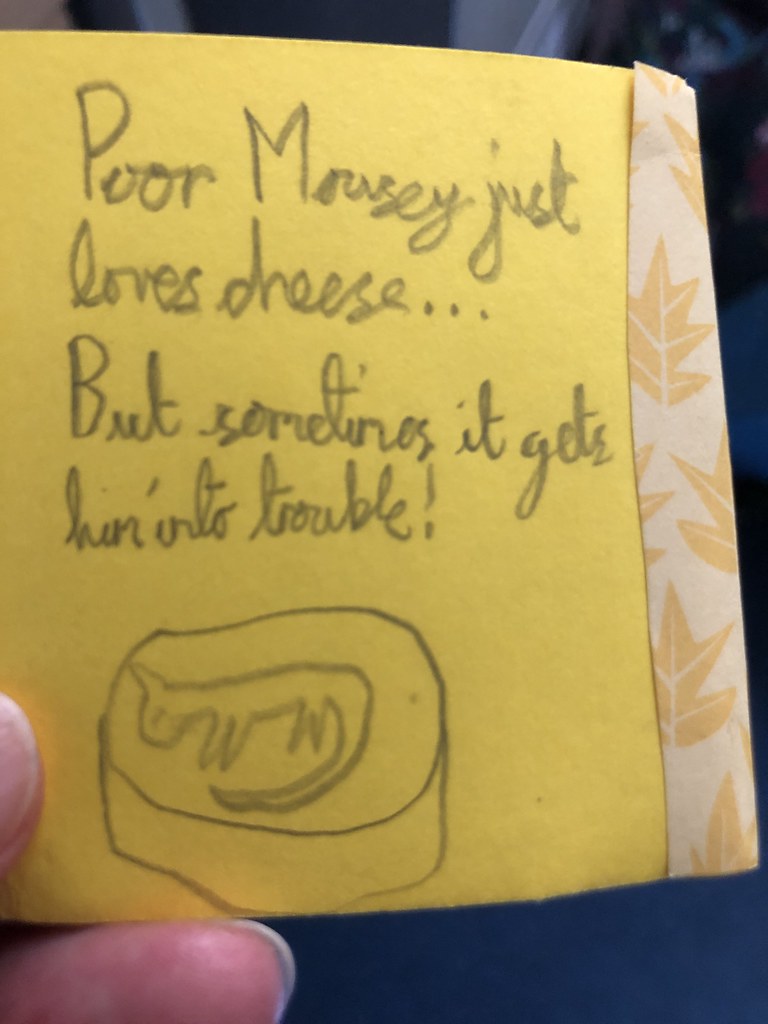 Poor Mousey just
loves cheese...
But sometimes it gets
him into trouble!